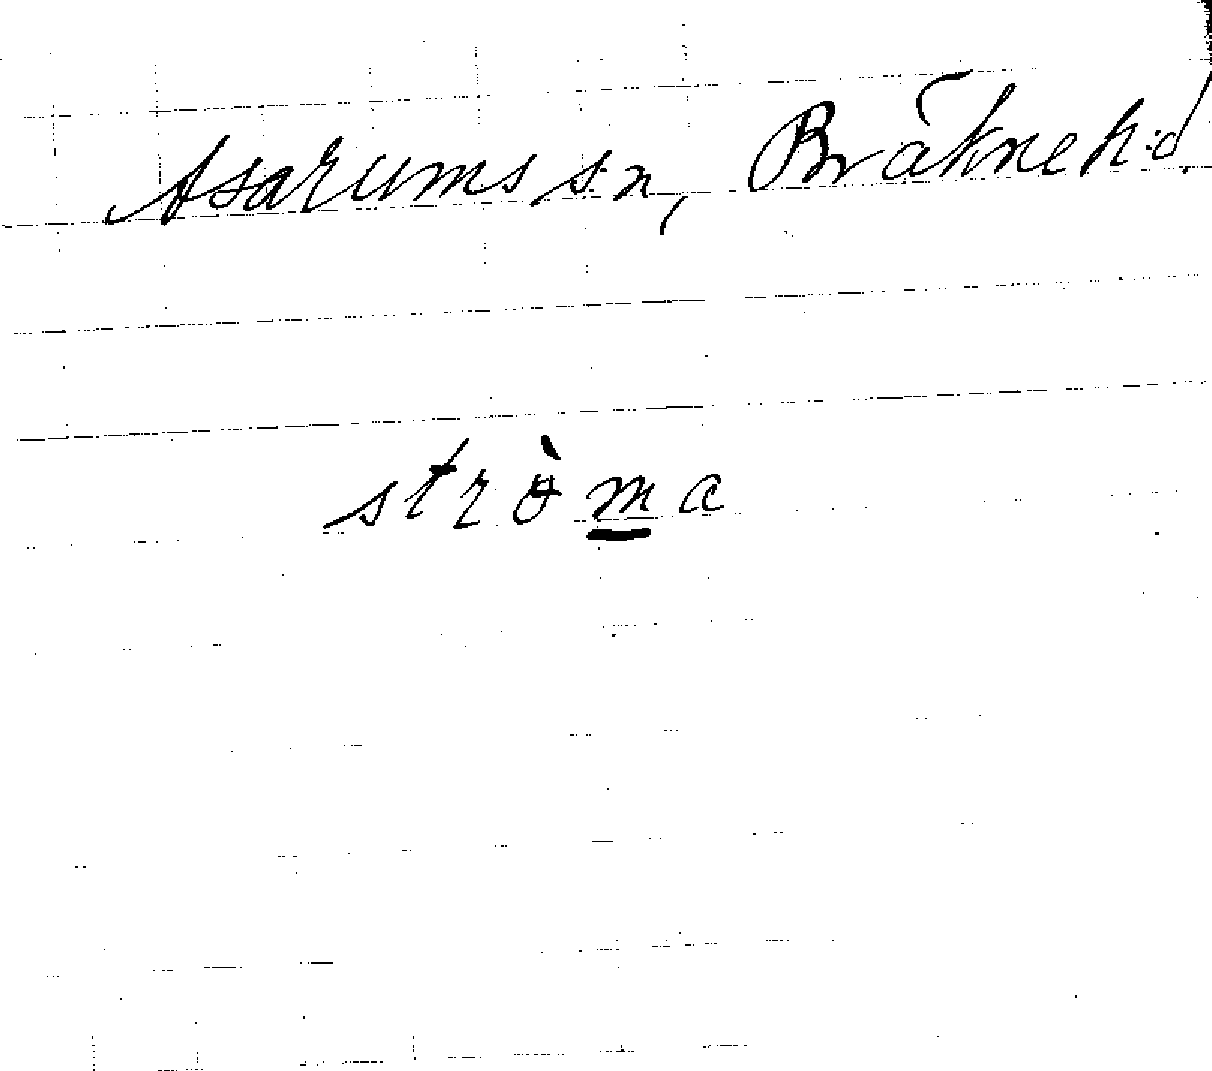 Asarums sn, Bräkne h:d.
strɵ̀m̲a